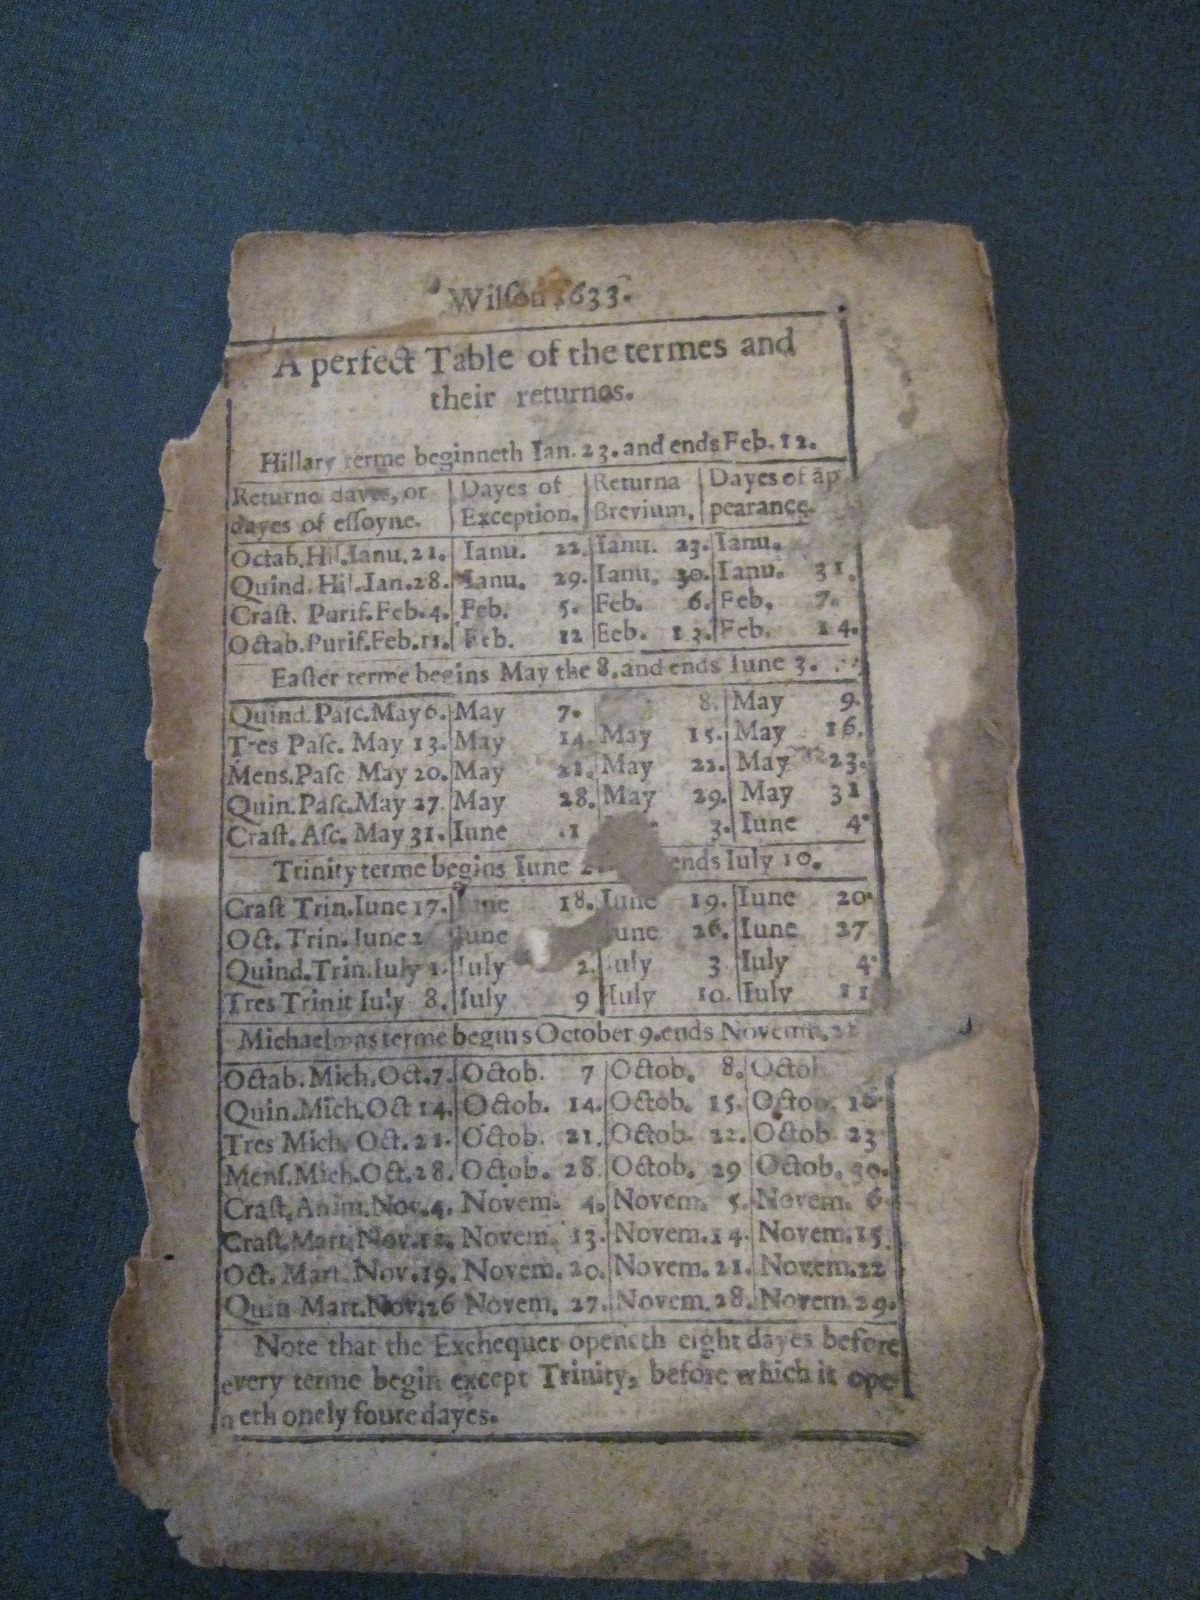 Wilſon 1633.
A perfect Table of the termes and
their returnes.
Hillary terme beginneth Ian. 23. and ends Feb. 12.
Returne dayes, or | Dayes of | Returna | Dayes of ap
dayes of eſſoyne. | Exception. | Brevium. | pearance.
Octab. Hil. Ianu. 21. Ianu. 22. Ianu. 23. Ianu.
Quind. Hil. Ian. 28. Ianu. 29. Ianu. 30. Ianu. 31.
Craſt. Purif. Feb. 4. Feb. 5. Feb. 6. Feb. 7.
Octab. Purif. Feb. 11. Feb. 12 Feb. 13. Feb. 14.
Eaſter terme begins May the 8. and ends Iune 3.
Quind. Paſc. May 6. May 7. 8. May 9.
Tres Paſc. May 13. May 14. May 15. May 16.
Mens. Paſc May 20. May 21. May 22. May 23.
Quin. Paſc. May 27. May 28. May 29. May 31
Craſt. Aſc. May 31. Iune 1 3. Iune 4.
Trinity terme begins Iune ends Iuly 10.
Craſt Trin. Iune 17. Iune 18. Iune 19. Iune 20.
Oct. Trin. Iune Iune Iune 26. Iune 27
Quind. Trin. Iuly 1. Iuly 2. Iuly 3 Iuly 4.
Tres Trinit Iuly 8. Iuly 9 Iuly 10. Iuly 11
Michaelmas terme begins October 9. ends Novem.
Octab. Mich. Oct. 7. Octob. 7 Octob. 8. Octob
Quin. Mich. Oct 14. Octob. 14. Octob. 15. Octob. 16
Tres Mich. Oct. 21. Octob. 21. Octob. 22. Octob. 23
Menſ. Mich. Oct. 28. Octob. 28. Octob. 29 Octob. 30.
Craſt. Anim. Nov. 4. Novem. 4. Novem. 5. Novem. 6
Craſt. Mart. Nov. 12. Novem. 13. Novem. 14. Novem. 15.
Oct. Mart. Nov. 19. Novem. 20. Novem. 21. Novem. 22
Quin Mart. Nov. 26 Novem. 27. Novem. 28. Novem. 29.
Note that the Exchequer openeth eight dayes before
every terme begin except Trinity, before which it ope-
neth onely foure dayes.